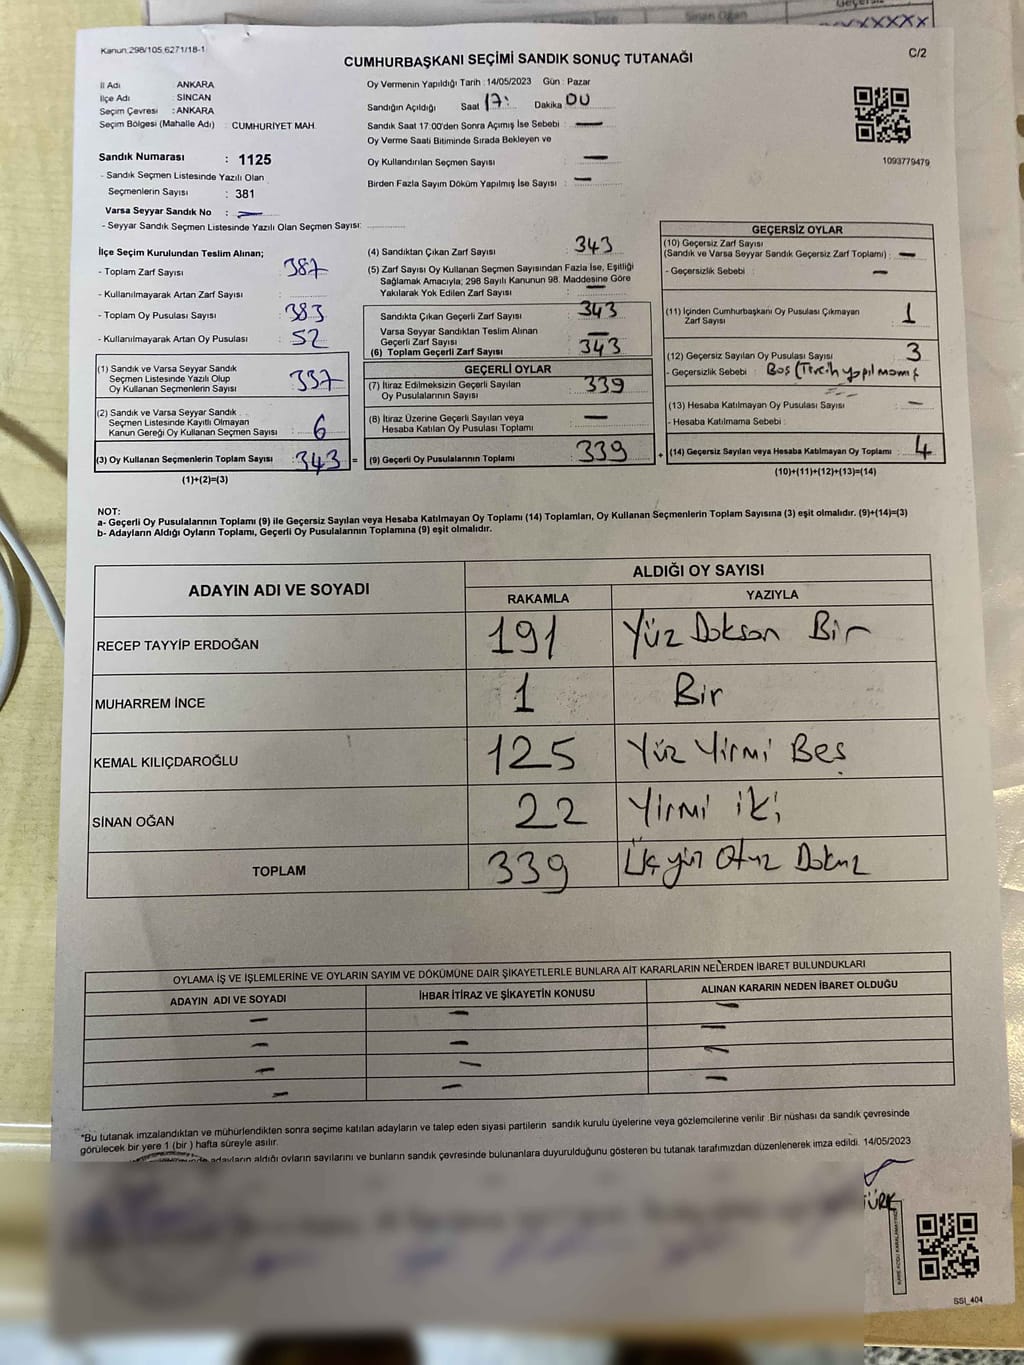 Geçersiz
Sinan Oğan
Kanun:298/105,6271/18-1
CUMHURBAŞKANI SEÇİMİ SANDIK SONUÇ TUTANAĞI
C/2
İl Adı ANKARA
İlçe Adı : SİNCAN
Seçim Çevresi : ANKARA
Seçim Bölgesi (Mahalle Adı) : CUMHURİYET MAH.
Oy Vermenin Yapıldığı Tarih : 14/05/2023 Gün : Pazar
Sandığın Açıldığı Saat 17: Dakika 00
Sandık Saat 17:00'den Sonra Açımış İse Sebebi : —
Oy Verme Saati Bitiminde Sırada Bekleyen ve
Oy Kullandırılan Seçmen Sayısı : —
Birden Fazla Sayım Döküm Yapılmış İse Sayısı : —
1093779479
Sandık Numarası : 1125
- Sandık Seçmen Listesinde Yazılı Olan
Seçmenlerin Sayısı : 381
Varsa Seyyar Sandık No : —
- Seyyar Sandık Seçmen Listesinde Yazılı Olan Seçmen Sayısı:
İlçe Seçim Kurulundan Teslim Alınan;
- Toplam Zarf Sayısı : 387
- Kullanılmayarak Artan Zarf Sayısı :
- Toplam Oy Pusulası Sayısı : 383
- Kullanılmayarak Artan Oy Pusulası : 52
(1) Sandık ve Varsa Seyyar Sandık
Seçmen Listesinde Yazılı Olup
Oy Kullanan Seçmenlerin Sayısı : 337
(2) Sandık ve Varsa Seyyar Sandık
Seçmen Listesinde Kayıtlı Olmayan
Kanun Gereği Oy Kullanan Seçmen Sayısı : 6
(3) Oy Kullanan Seçmenlerin Toplam Sayısı : 343 =
(1)+(2)=(3)
(4) Sandıktan Çıkan Zarf Sayısı : 343
(5) Zarf Sayısı Oy Kullanan Seçmen Sayısından Fazla İse, Eşitliği
Sağlamak Amacıyla; 298 Sayılı Kanunun 98. Maddesine Göre
Yakılarak Yok Edilen Zarf Sayısı : —
Sandıkta Çıkan Geçerli Zarf Sayısı : 343
Varsa Seyyar Sandıktan Teslim Alınan
Geçerli Zarf Sayısı : —
(6) Toplam Geçerli Zarf Sayısı : 343
GEÇERLİ OYLAR
(7) İtiraz Edilmeksizin Geçerli Sayılan
Oy Pusulalarının Sayısı : 339
(8) İtiraz Üzerine Geçerli Sayılan veya
Hesaba Katılan Oy Pusulası Toplamı : —
(9) Geçerli Oy Pusulalarının Toplamı : 339 +
GEÇERSİZ OYLAR
(10) Geçersiz Zarf Sayısı
(Sandık ve Varsa Seyyar Sandık Geçersiz Zarf Toplamı) : —
- Geçersizlik Sebebi : —
(11) İçinden Cumhurbaşkanı Oy Pusulası Çıkmayan
Zarf Sayısı : 1
(12) Geçersiz Sayılan Oy Pusulası Sayısı : 3
- Geçersizlik Sebebi : Boş (Tercih yapılmamış
(13) Hesaba Katılmayan Oy Pusulası Sayısı : —
- Hesaba Katılmama Sebebi :
(14) Geçersiz Sayılan veya Hesaba Katılmayan Oy Toplamı : 4
(10)+(11)+(12)+(13)=(14)
NOT:
a- Geçerli Oy Pusulalarının Toplamı (9) ile Geçersiz Sayılan veya Hesaba Katılmayan Oy Toplamı (14) Toplamları, Oy Kullanan Seçmenlerin Toplam Sayısına (3) eşit olmalıdır. (9)+(14)=(3)
b- Adayların Aldığı Oyların Toplamı, Geçerli Oy Pusulalarının Toplamına (9) eşit olmalıdır.
ADAYIN ADI VE SOYADI
ALDIĞI OY SAYISI
RAKAMLA YAZIYLA
RECEP TAYYİP ERDOĞAN 191 Yüz Doksan Bir
MUHARREM İNCE 1 Bir
KEMAL KILIÇDAROĞLU 125 Yüz Yirmi Beş
SİNAN OĞAN 22 Yirmi iki
TOPLAM 339 Üçyüz Otuz Dokuz
OYLAMA İŞ VE İŞLEMLERİNE VE OYLARIN SAYIM VE DÖKÜMÜNE DAİR ŞİKAYETLERLE BUNLARA AİT KARARLARIN NELERDEN İBARET BULUNDUKLARI
ADAYIN ADI VE SOYADI İHBAR İTİRAZ VE ŞİKAYETİN KONUSU ALINAN KARARIN NEDEN İBARET OLDUĞU
— — —
— — —
— — —
— — —
*Bu tutanak imzalandıktan ve mühürlendikten sonra seçime katılan adayların ve talep eden siyasi partilerin sandık kurulu üyelerine veya gözlemcilerine verilir .Bir nüshası da sandık çevresinde
görülecek bir yere 1 (bir ) hafta süreyle asılır.
adayların aldığı oyların sayılarını ve bunların sandık çevresinde bulunanlara duyurulduğunu gösteren bu tutanak tarafımızdan düzenlenerek imza edildi. 14/05/2023
SSI_404